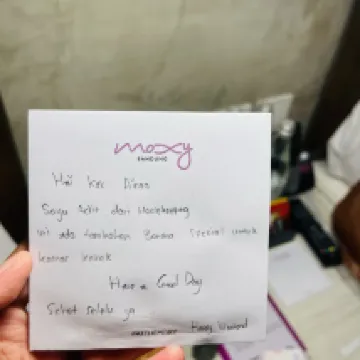 moxy
BANDUNG
Hai Kak Diana
Saya Adit dari Housekeeping
ini ada tambahan Bonus special untuk
kamar kakak
Have a Good Day
Sehat selalu ya...
Happy Weekend